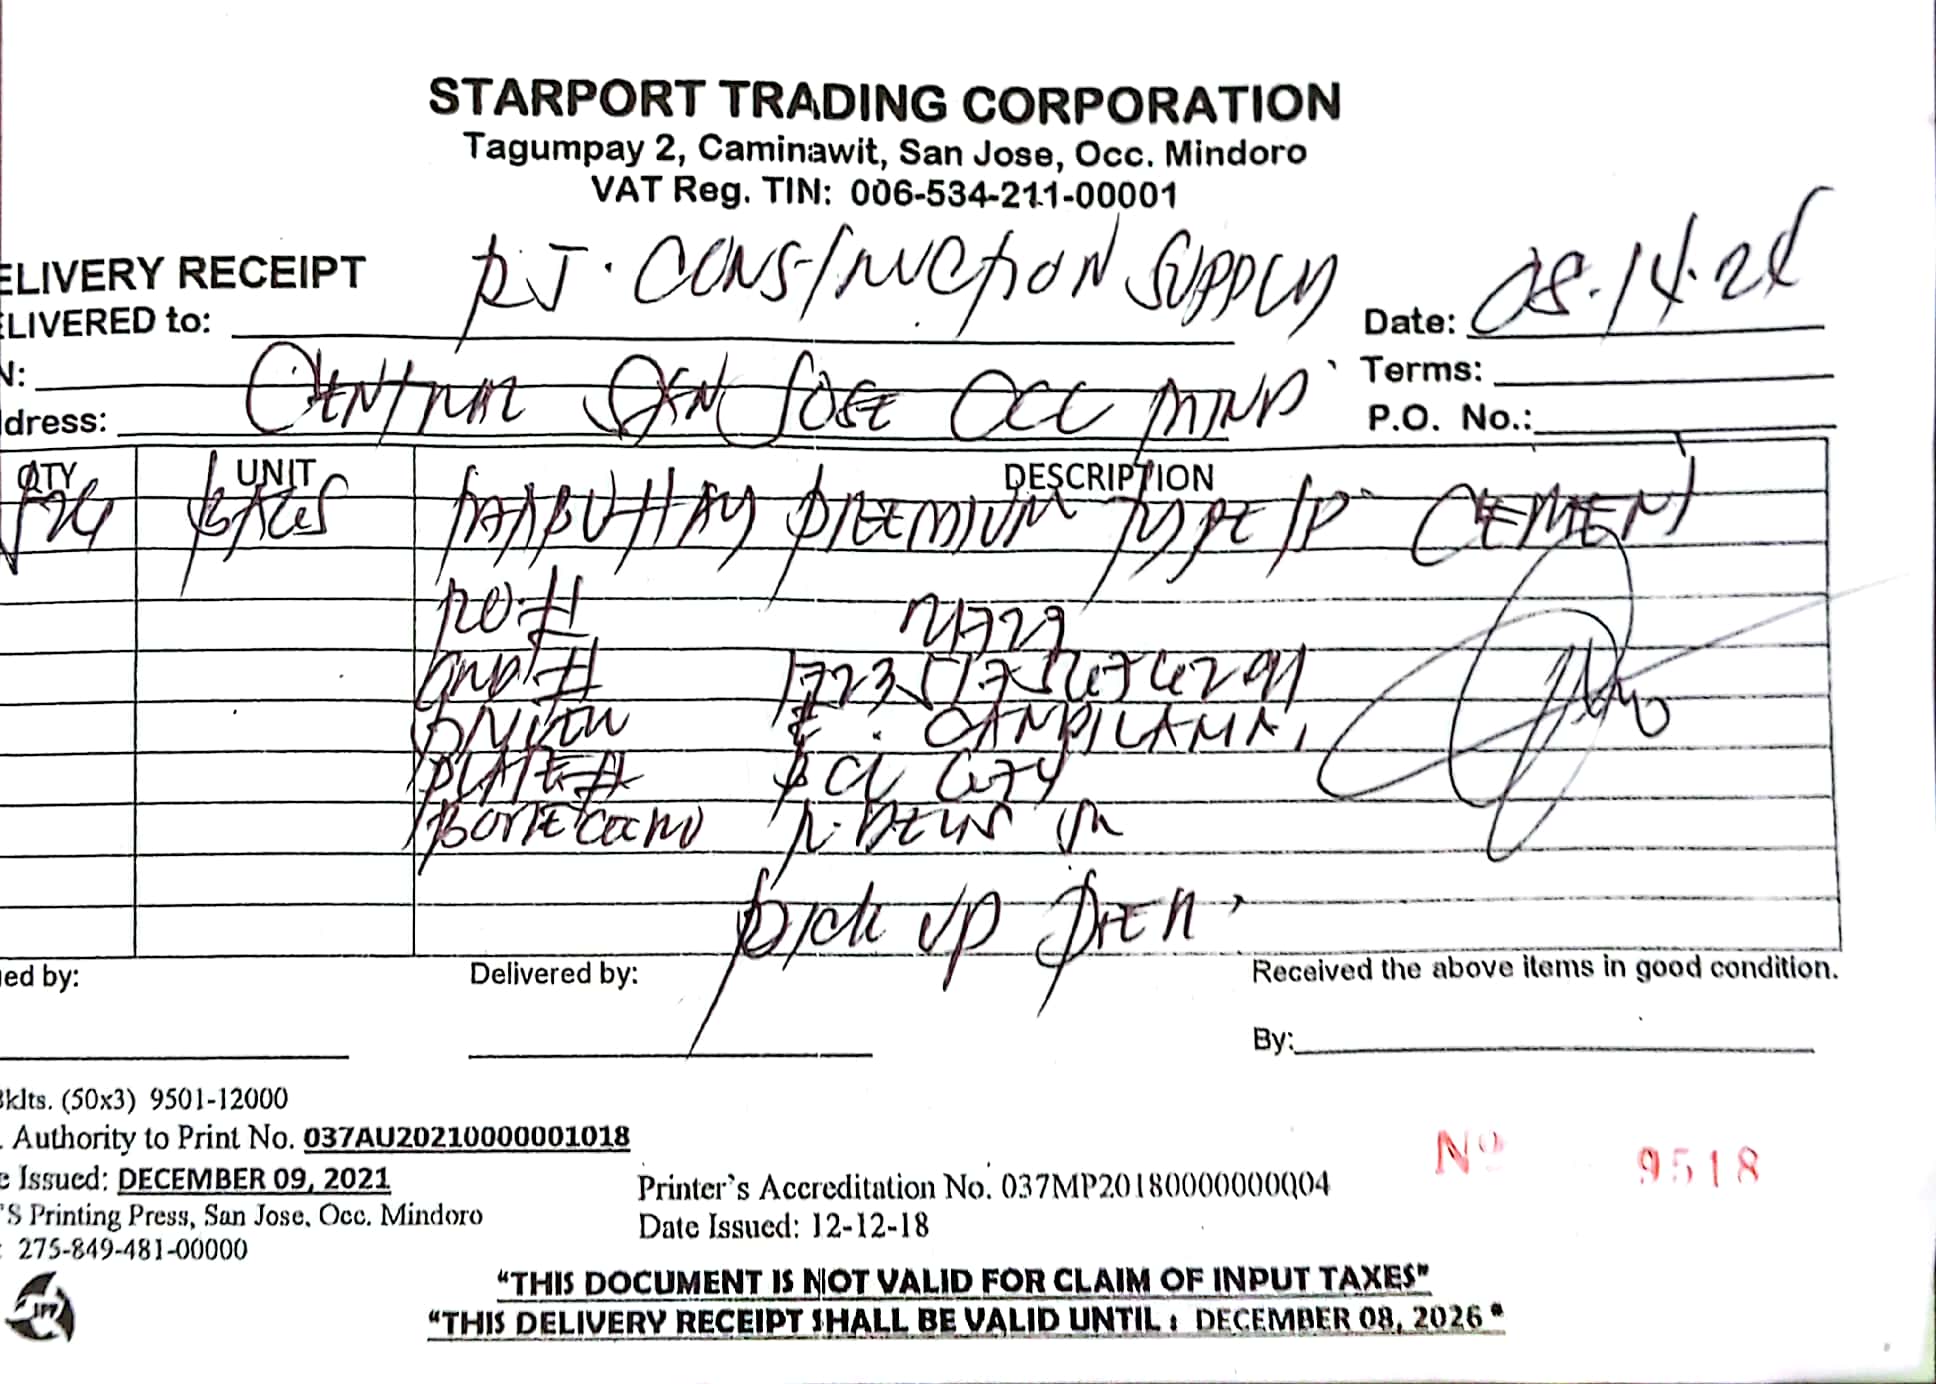 STARPORT TRADING CORPORATION
Tagumpay 2, Caminawit, San Jose, Occ. Mindoro
VAT Reg. TIN: 006-534-211-00001
ELIVERY RECEIPT
LIVERED to: RJ. CONSTRUCTION SUPPLY
Date: 08.14.24
N:
Terms:
dress: CENTRAL SAN JOSE OCC MIND
P.O. No.:
QTY UNIT DESCRIPTION
BAGS MABUHAY PREMIUM TYPE 1P CEMENT
PO# 21729
DRIVER
PLATE#
PICK UP PIER
ed by:
Delivered by:
Received the above items in good condition.
By:
Bklts. (50x3) 9501-12000
. Authority to Print No. 037AU20210000001018
e Issued: DECEMBER 09, 2021
'S Printing Press, San Jose, Occ. Mindoro
: 275-849-481-00000
Printer's Accreditation No. 037MP20180000000004
Date Issued: 12-12-18
Nº 9518
"THIS DOCUMENT IS NOT VALID FOR CLAIM OF INPUT TAXES"
"THIS DELIVERY RECEIPT SHALL BE VALID UNTIL : DECEMBER 08, 2026"